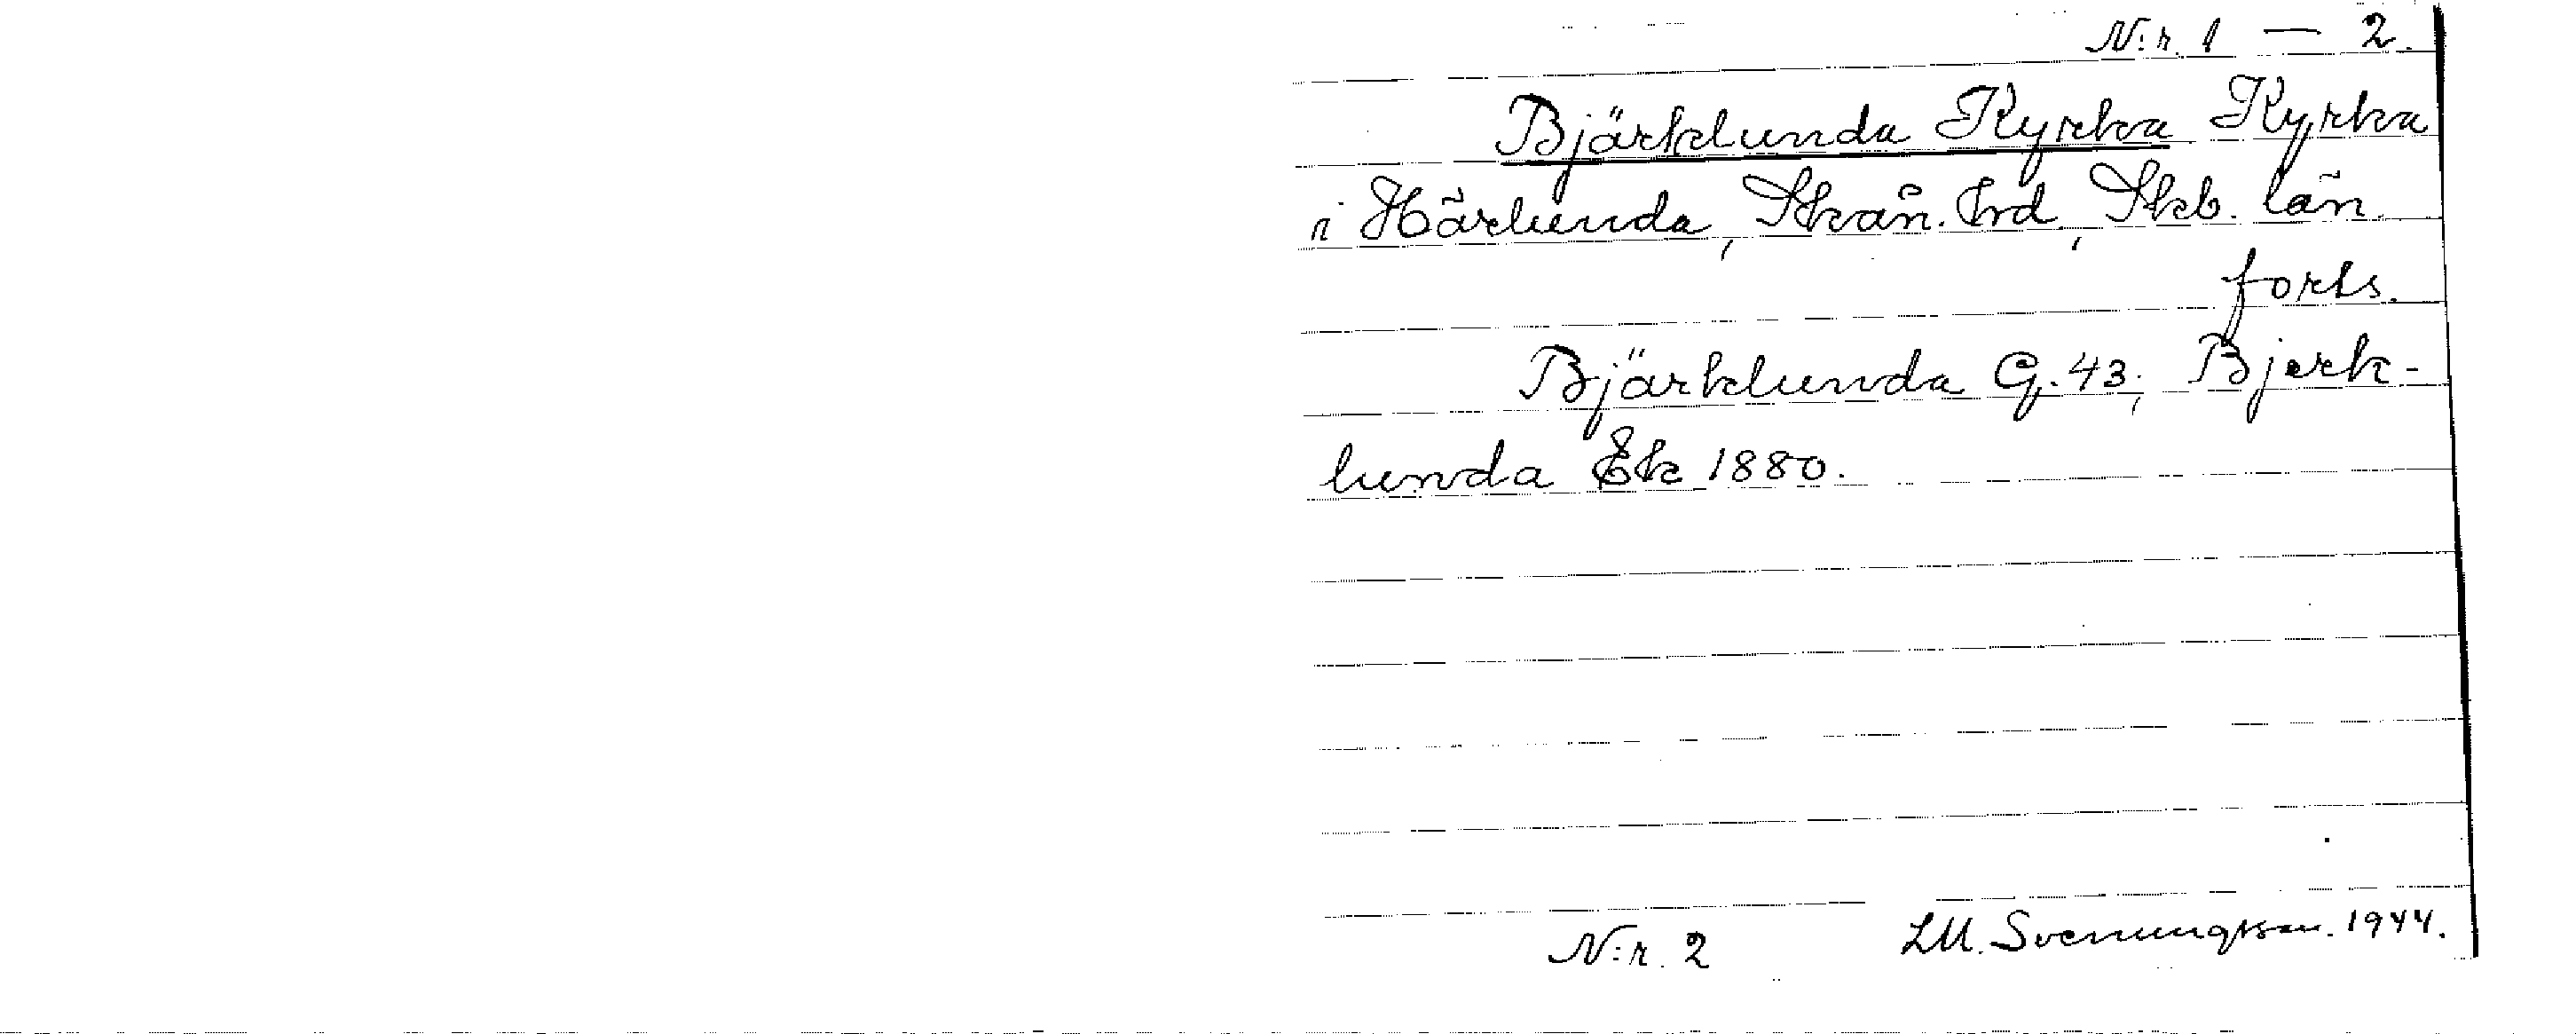 N:r. 1 — 2.
Bjärklunda Kyrka Kyrka
i Härlunda, Skån. hrd, Skb. län.
forts.
Bjärklunda G. 43; Bjerk-
lunda Ek 1880.
N:r. 2 LM. Svenungsson. 1944.